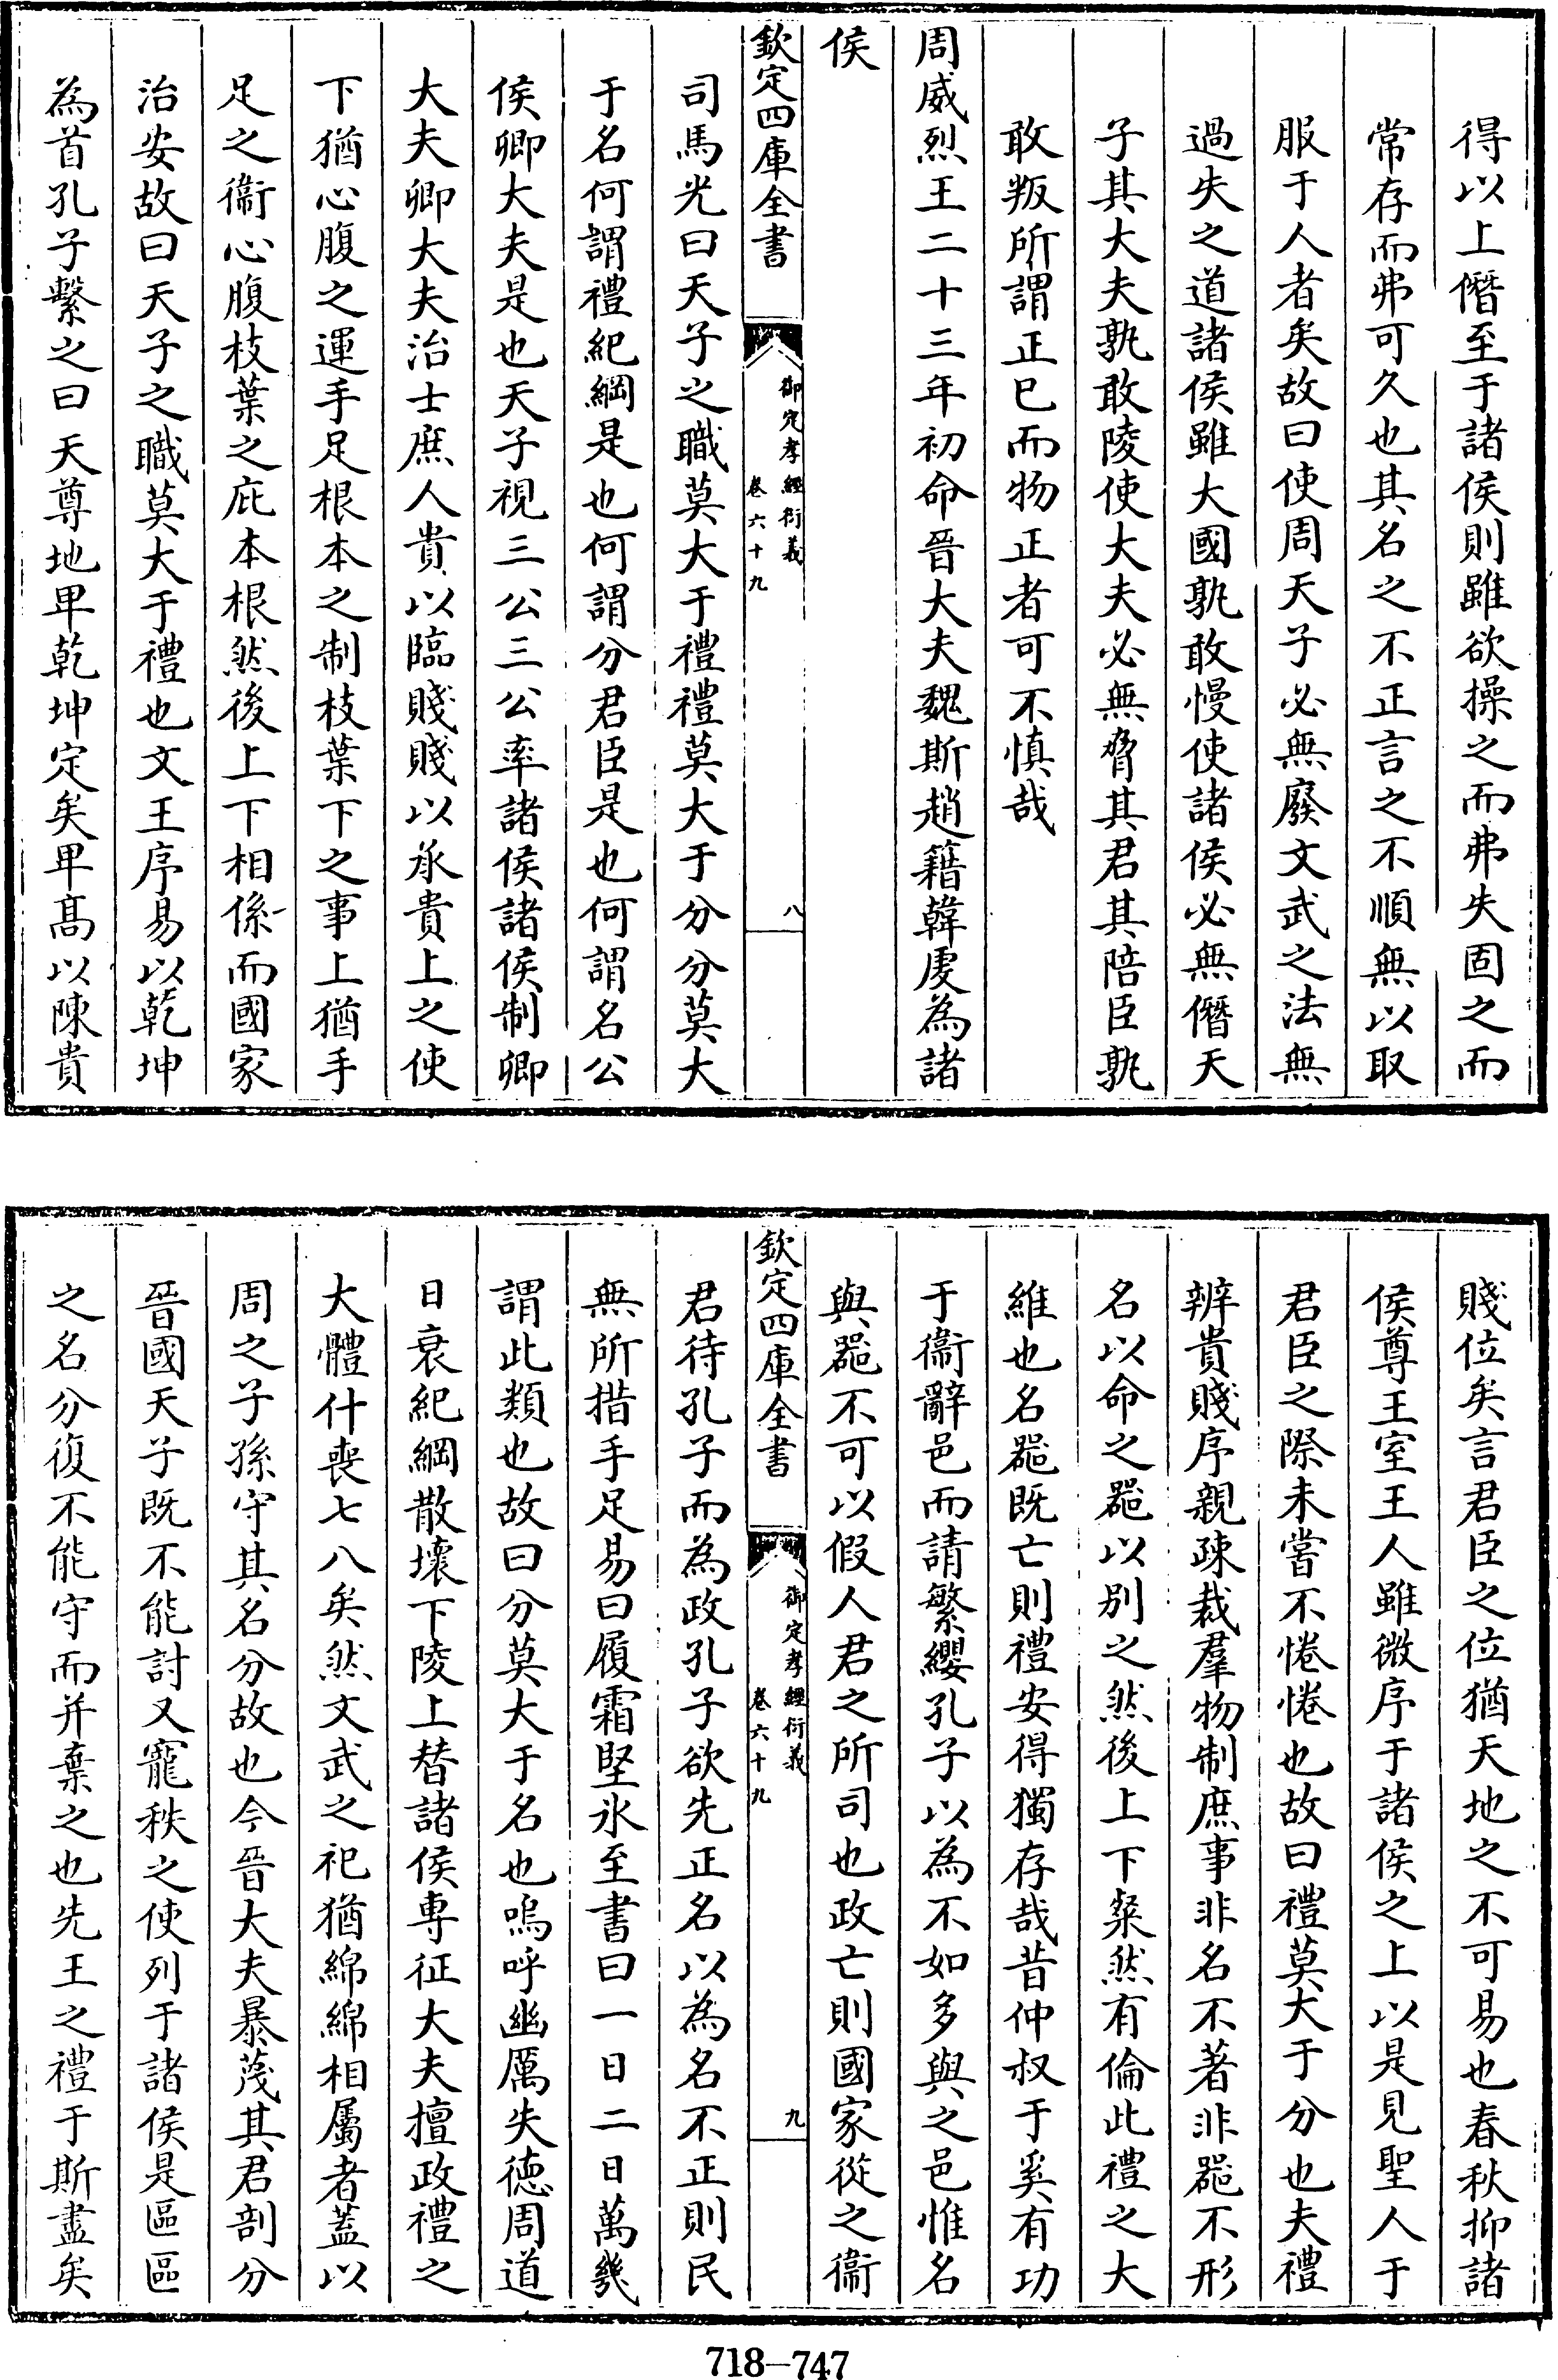 得以上僭至于諸侯則雖欲操之而弗失固之而
常存而弗可久也其名之不正言之不順無以取
服于人者矣故曰使周天子必無廢文武之法無
過失之道諸侯雖大國孰敢慢使諸侯必無僭天
子其大夫孰敢陵使大夫必無脅其君其陪臣孰
敢叛所謂正已而物正者可不慎哉
周威烈王二十三年初命晉大夫魏斯趙籍韓虔為諸
侯
欽定四庫全書
御定孝經衍義
卷六十九
八
司馬光曰天子之職莫大于禮禮莫大于分分莫大
于名何謂禮紀綱是也何謂分君臣是也何謂名公
侯卿大夫是也天子視三公三公率諸侯諸侯制卿
大夫卿大夫治士庶人貴以臨賤賤以承貴上之使
下猶心腹之運手足根本之制枝葉下之事上猶手
足之衞心腹枝葉之庇本根然後上下相係而國家
治安故曰天子之職莫大于禮也文王序易以乾坤
為首孔子繫之曰天尊地卑乾坤定矣卑髙以陳貴
賤位矣言君臣之位猶天地之不可易也春秋抑諸
侯尊王室王人雖微序于諸侯之上以是見聖人于
君臣之際未嘗不惓惓也故曰禮莫大于分也夫禮
辨貴賤序親疎裁羣物制庶事非名不著非噐不形
名以命之噐以别之然後上下粲然有倫此禮之大
維也名噐既亡則禮安得獨存哉昔仲叔于奚有功
于衞辭邑而請繁纓孔子以為不如多與之邑惟名
與噐不可以假人君之所司也政亡則國家從之衞
欽定四庫全書
御定孝經衍義
卷六十九
九
君待孔子而為政孔子欲先正名以為名不正則民
無所措手足易曰履霜堅氷至書曰一日二日萬幾
謂此類也故曰分莫大于名也嗚呼幽厲失徳周道
日衰紀綱散壞下陵上替諸侯專征大夫擅政禮之
大體什喪七八矣然文武之祀猶綿綿相屬者蓋以
周之子孫守其名分故也今晉大夫暴蔑其君剖分
晉國天子既不能討又寵秩之使列于諸侯是區區
之名分復不能守而并棄之也先王之禮于斯盡矣
718-747